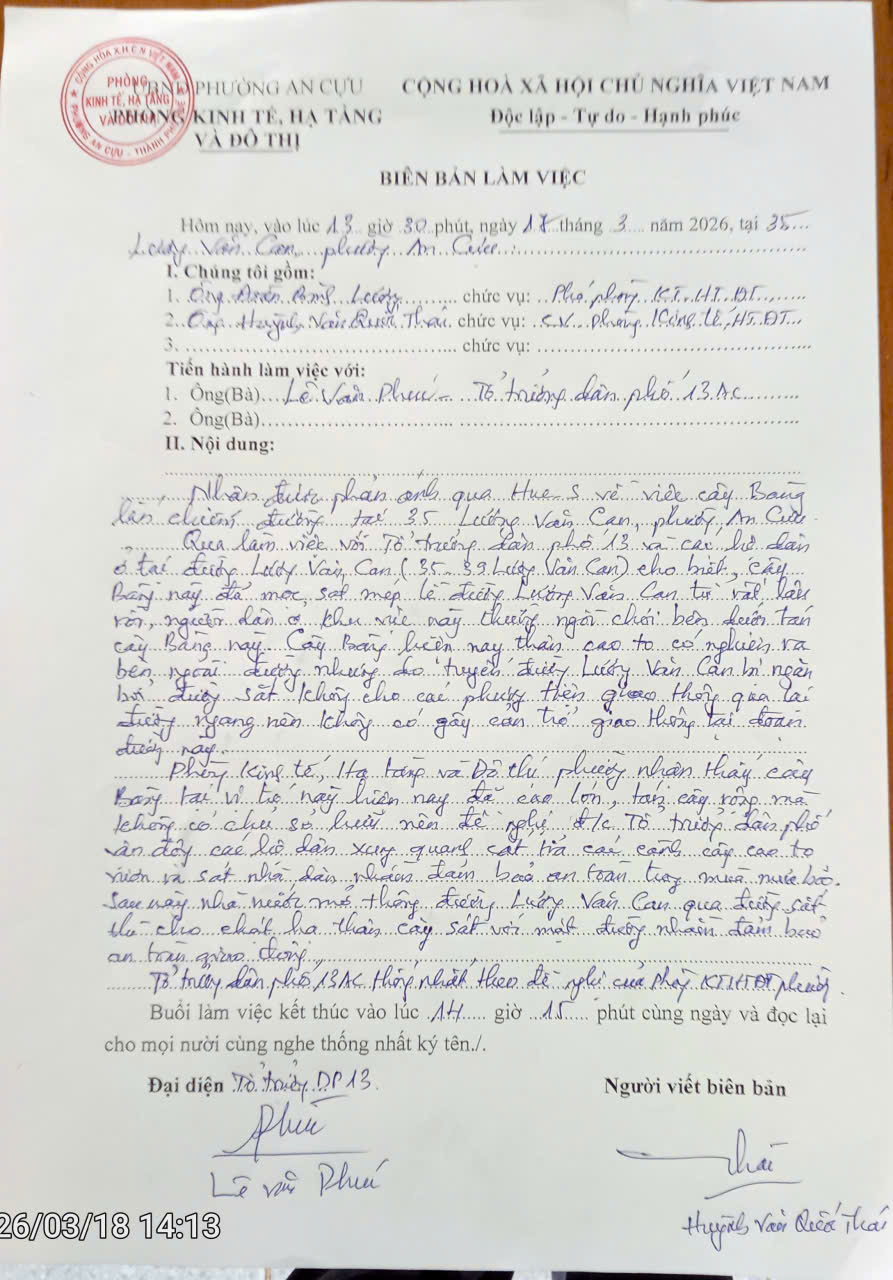 CỘNG HÒA X.H.C.N VIỆT NAM
PHÒNG
KINH TẾ, HẠ TẦNG
VÀ ĐÔ THỊ
PHƯỜNG AN CỰU - THÀNH PHỐ
UBND PHƯỜNG AN CỰU
PHÒNG KINH TẾ, HẠ TẦNG
VÀ ĐÔ THỊ
CỘNG HOÀ XÃ HỘI CHỦ NGHĨA VIỆT NAM
Độc lập - Tự do - Hạnh phúc
BIÊN BẢN LÀM VIỆC
Hôm nay, vào lúc 13 giờ 30 phút, ngày 17 tháng 3 năm 2026, tại 35
Lương Văn Can, phường An Cựu
I. Chúng tôi gồm:
1. Ông Lương chức vụ: Phó phòng KT, HT, ĐT
2. Ông Huỳnh Văn Quốc Thái chức vụ: C.V. Phòng Kinh tế, HT, ĐT
3. chức vụ:
Tiến hành làm việc với:
1. Ông(Bà) Lê Văn Phú - Tổ trưởng dân phố 13 AC
2. Ông(Bà)
II. Nội dung:
Nhận được phản ánh qua Hue-S về việc cây Bàng
lấn chiếm đường tại 35 Lương Văn Can, phường An Cựu.
Qua làm việc với Tổ trưởng dân phố 13 và các hộ dân
ở tại đường Lương Văn Can (35-39 Lương Văn Can) cho biết, cây
Bàng này đã mọc sát mép lề đường Lương Văn Can từ rất lâu
rồi, người dân ở khu vực này thường ngồi chơi bên dưới tán
cây Bàng này. Cây Bàng hiện nay thân cao to có nghiên ra
bên ngoài đường nhưng do tuyến đường Lương Văn Can bị ngăn
bởi đường sắt không cho các phương tiện giao thông qua lại
đường ngang nên không có gây cản trở giao thông tại đoạn
đường này.
Phòng Kinh tế, Hạ tầng và Đô thị phường nhận thấy cây
Bàng tại vị trí này hiện nay đã cao lớn, tán cây rộng mà
không có chủ sở hữu nên đề nghị đ/c Tổ trưởng dân phố
vận động các hộ dân xung quanh cắt tỉa các cành cây cao to
vươn ra sát nhà dân nhằm đảm bảo an toàn trong mùa mưa bão.
Sau này nhà nước mở thông đường Lương Văn Can qua đường sắt
thì cho chặt hạ thân cây sát với mặt đường nhằm đảm bảo
an toàn giao thông.
Tổ trưởng dân phố 13AC thống nhất theo đề nghị của phòng KTHTĐT phường.
Buổi làm việc kết thúc vào lúc 14 giờ 15 phút cùng ngày và đọc lại
cho mọi nười cùng nghe thống nhất ký tên./.
Đại diện Tổ trưởng DP13
Người viết biên bản
Phú
Lê văn Phú
Thái
Huỳnh Văn Quốc Thái
26/03/18 14:13